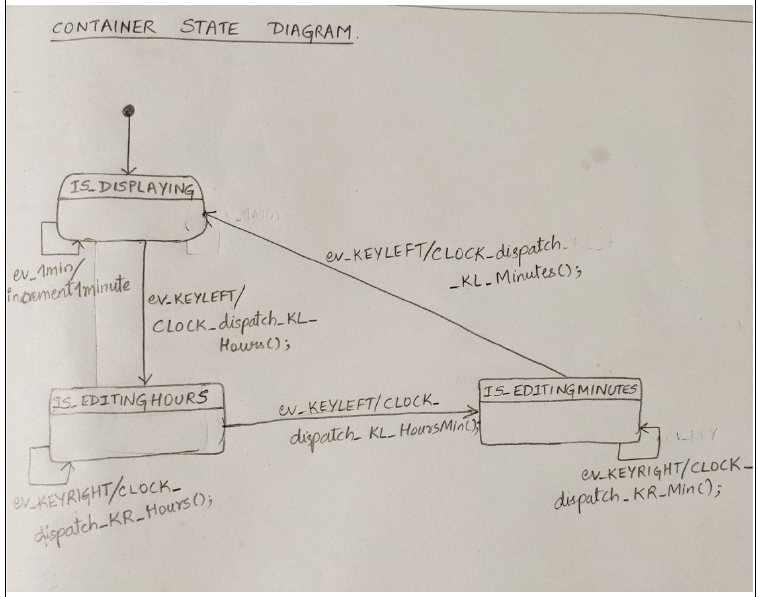 CONTAINER STATE DIAGRAM.
IS_DISPLAYING
ev_1min/
increment1minute
ev_KEYLEFT/
CLOCK_dispatch_KL_
Hours();
ev_KEYLEFT/CLOCK_dispatch_
_KL_Minutes();
IS_EDITINGHOURS
ev_KEYLEFT/CLOCK_
dispatch_KL_HoursMin();
IS_EDITINGMINUTES
ev_KEYRIGHT/CLOCK_
dispatch_KR_Hours();
ev_KEYRIGHT/CLOCK_
dispatch_KR_Min();